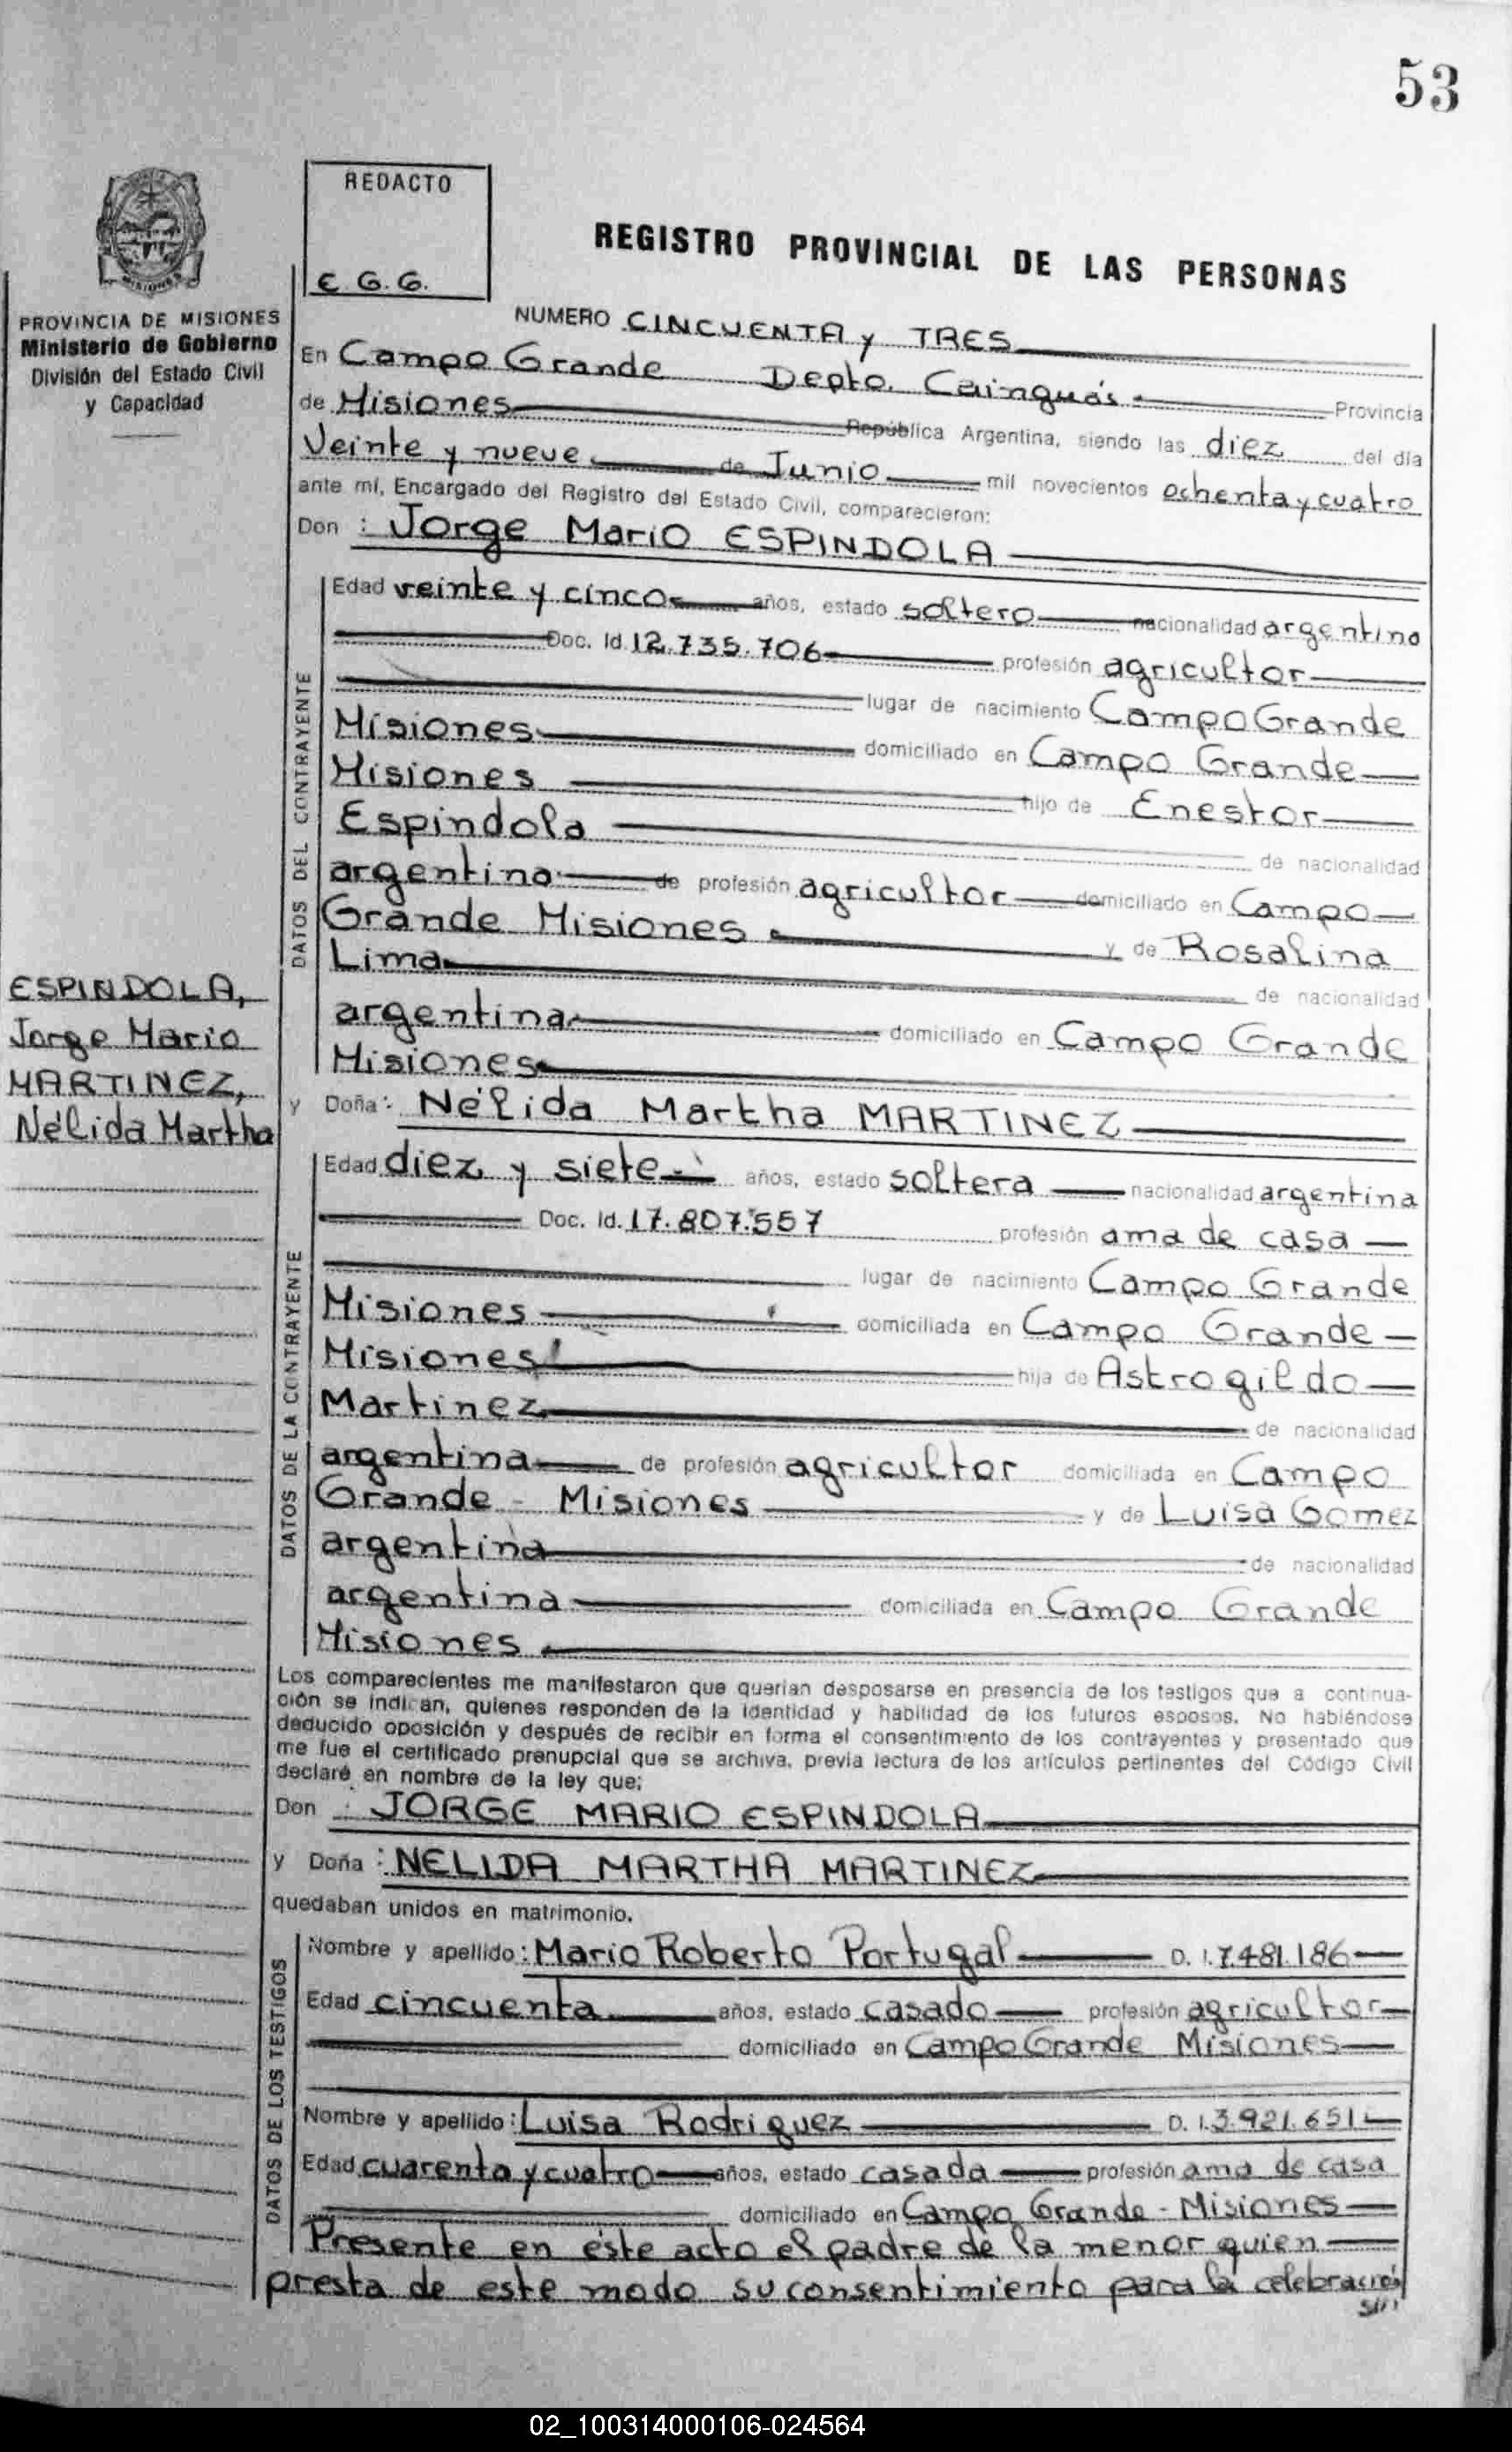 53
REDACTO
E. G. G.
REGISTRO PROVINCIAL DE LAS PERSONAS
MISIONES
PROVINCIA DE MISIONES
Ministerio de Gobierno
División del Estado Civil
y Capacidad
NUMERO CINCUENTA y TRES
En Campo Grande Depto. Cainguás
de Misiones Provincia
República Argentina, siendo las diez del día
Veinte y nueve de Junio mil novecientos ochenta y cuatro
ante mí, Encargado del Registro del Estado Civil, comparecieron:
Don : Jorge Mario ESPINDOLA
DATOS DEL CONTRAYENTE
Edad veinte y cinco años, estado soltero nacionalidad argentino
Doc. Id. 12.735.706 profesión agricultor
lugar de nacimiento Campo Grande
Misiones domiciliado en Campo Grande
Misiones hijo de Enestor
Espindola de nacionalidad
argentino de profesión agricultor domiciliado en Campo
Grande Misiones y de Rosalina
Lima de nacionalidad
argentina domiciliado en Campo Grande
Misiones
ESPINDOLA,
Jorge Mario
MARTINEZ,
Nélida Martha
y Doña: Nélida Martha MARTINEZ
DATOS DE LA CONTRAYENTE
Edad diez y siete años, estado soltera nacionalidad argentina
Doc. Id. 17.807.557 profesión ama de casa
lugar de nacimiento Campo Grande
Misiones domiciliada en Campo Grande
Misiones hija de Astrogildo
Martinez de nacionalidad
argentina de profesión agricultor domiciliada en Campo
Grande - Misiones y de Luisa Gomez
argentina de nacionalidad
argentina domiciliada en Campo Grande
Misiones
Los comparecientes me manifestaron que querían desposarse en presencia de los testigos que a continua-
ción se indican, quienes responden de la identidad y habilidad de los futuros esposos. No habiéndose
deducido oposición y después de recibir en forma el consentimiento de los contrayentes y presentado que
me fue el certificado prenupcial que se archiva, previa lectura de los artículos pertinentes del Código Civil
declaré en nombre de la ley que;
Don : JORGE MARIO ESPINDOLA
y Doña : NELIDA MARTHA MARTINEZ
quedaban unidos en matrimonio.
DATOS DE LOS TESTIGOS
Nombre y apellido: Mario Roberto Portugal D. I. 7.481.186
Edad cincuenta años, estado casado profesión agricultor
domiciliado en Campo Grande Misiones
Nombre y apellido: Luisa Rodriguez D. I. 3.921.651
Edad cuarenta y cuatro años, estado casada profesión ama de casa
domiciliado en Campo Grande - Misiones
Presente en éste acto el padre de la menor quien
presta de este modo su consentimiento para la celebración
02_100314000106-024564